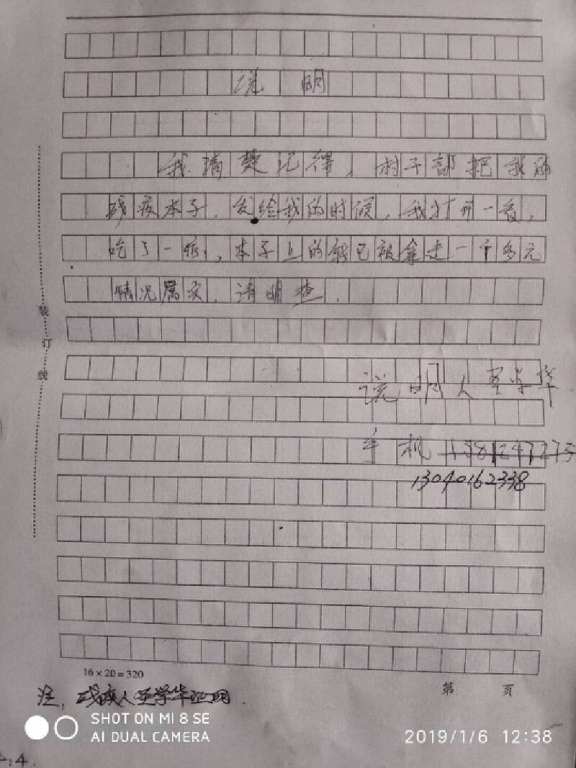 说明
我清楚记得，村干部把我的
残疾本子，发给我的时候，我打开一看，
吃了一惊，本子上的钱已被拿走一千多元
情况属实，请明查．
说明人 学华
手机
13040162338
装
订
线
16×20=320
第 页
注，残疾人 学华证明．
SHOT ON MI 8 SE
AI DUAL CAMERA
2019/1/6 12:38